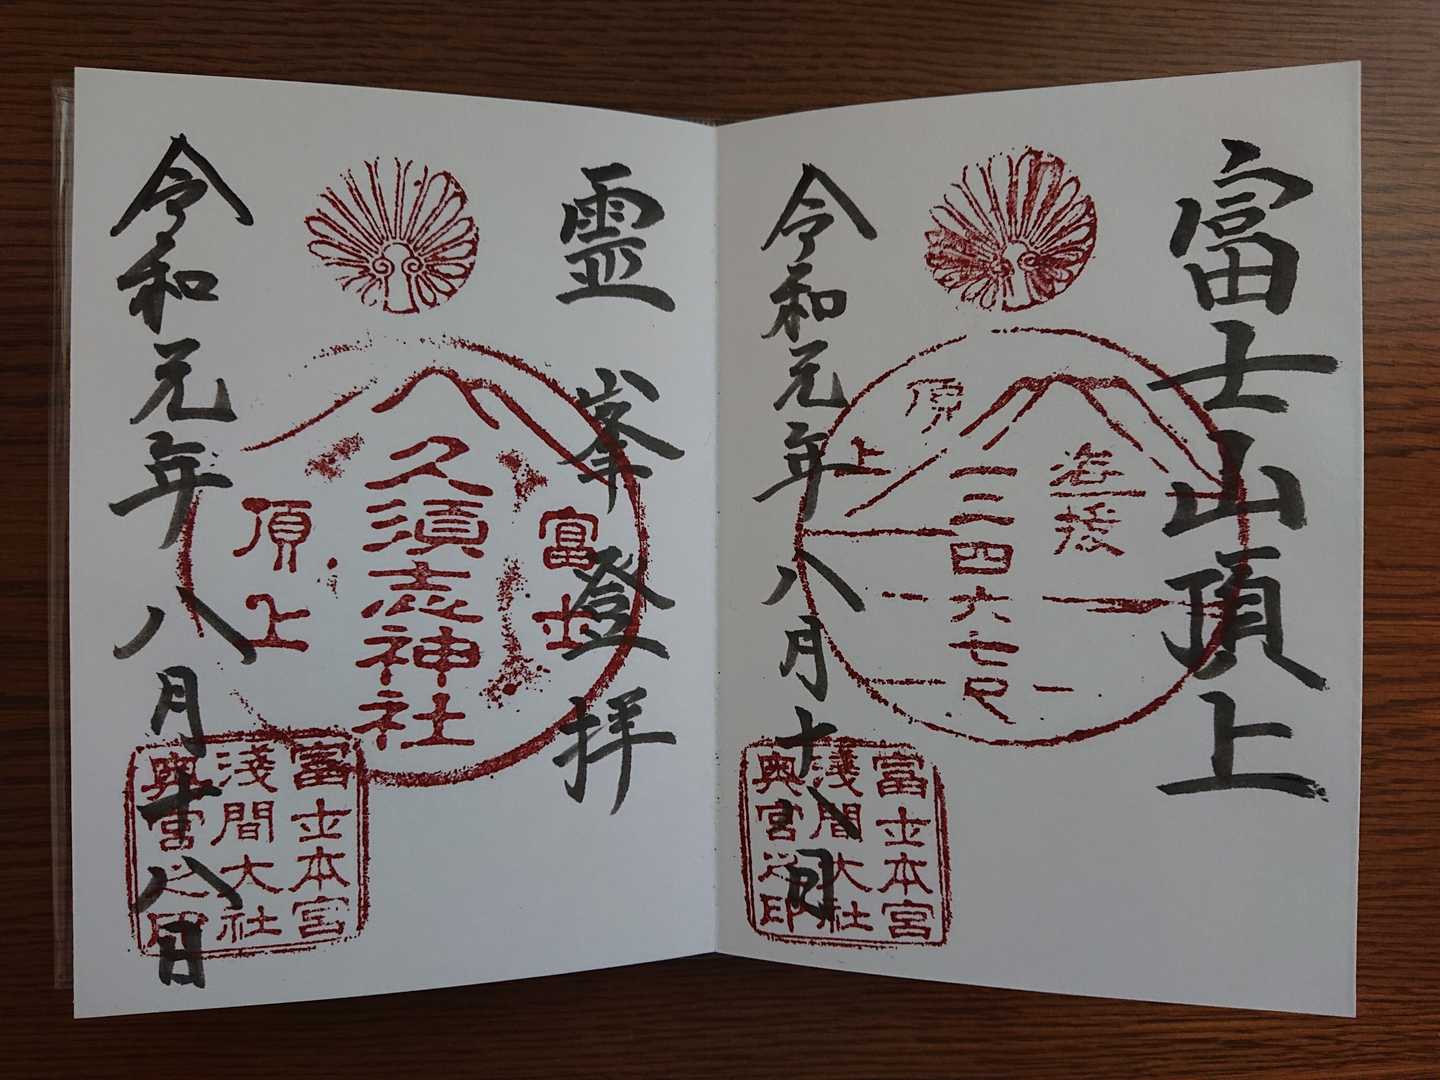 富士山頂上
海抜
一二四六七尺
頂上
富士本宮
淺間大社
奥宮之印
令和元年八月十八日
霊峯登拝
富士
久須志神社
頂上
富士本宮
淺間大社
奥宮之印
令和元年八月十八日